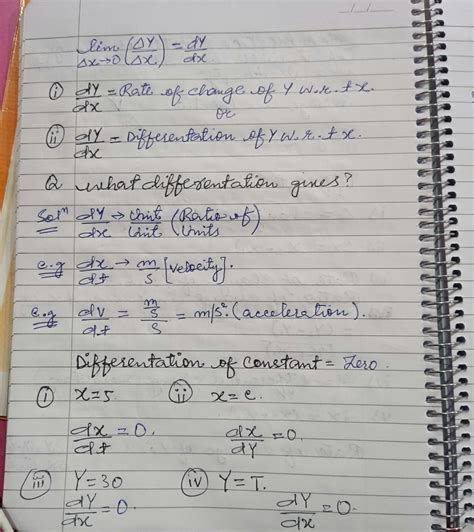 lim Δx→0 (ΔY/Δx) = dY/dx
(i) dY/dx = Rate of change of Y w.r.t x.
or
(ii) dY/dx = Differentation of Y w.r.t x.
Q what differentation gives?
Solⁿ dY/dx → Unit/Unit (Ratio of Units)
e.g dx/dt → m/s [velocity].
e.g dv/dt = m/s/s = m/s². (acceleration).
Differentation of constant = Zero.
(i) x=5 (ii) x=e.
dx/dt = 0. dx/dY = 0.
(iii) Y=30 (iv) Y=T.
dY/dx = 0. dY/dx = 0.